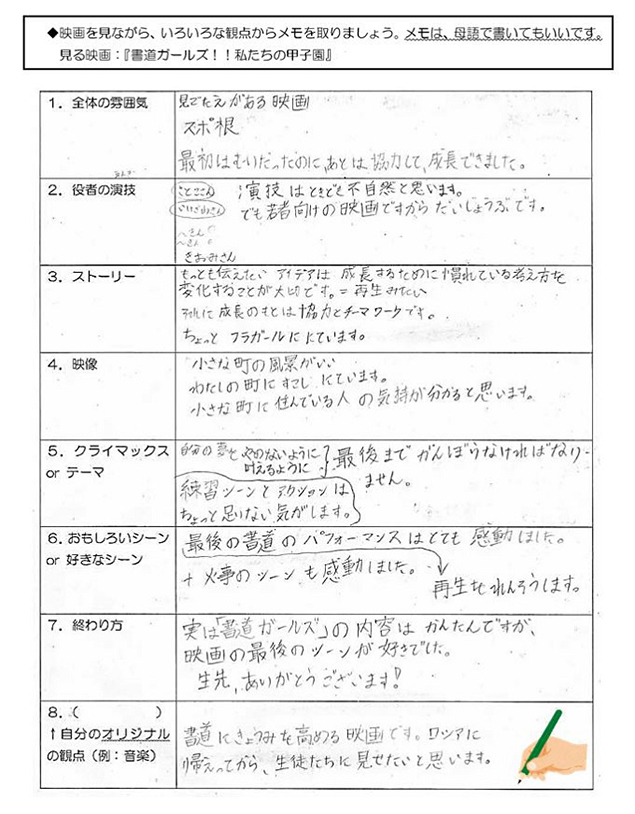 ◆映画を見ながら、いろいろな観点からメモを取りましょう。メモは、母語で書いてもいいです。
見る映画：『書道ガールズ！！私たちの甲子園』
1．全体の雰囲気
見ごたえがある映画
スポ根
最初はむりだったのに、あとは協力して、成長できました。
2．役者の演技
演技はときどき不自然と思います。
でも若者向けの映画ですからだいじょうぶです。
きよみさん
3．ストーリー
もっとも伝えたいアイデアは成長するために慣れている考え方を
変化することが大切です。＝再生みたい
それに成長のもとは協力とチーマワークです。
ちょっとフラガールににています。
4．映像
小さな町の風景がいい
わたしの町にすこしにています。
小さな町に住んでいる人の気持が分かると思います。
5．クライマックス
or テーマ
自分の夢をやめないように
叶えるように
最後までがんばらなければなり
ません。
練習シーンとアクションは
ちょっと足りない気がします。
6．おもしろいシーン
or 好きなシーン
最後の書道のパフォーマンスはとても感動しました。
+ 火事のシーンも感動しました。
再生をれんそうします。
7．終わり方
実は「書道ガールズ」の内容はかんたんですが、
映画の最後のシーンが好きでした。
生先、ありがとうございます!
8．(　　　　　)
↑自分のオリジナル
の観点（例：音楽）
書道にきょうみを高める映画です。ロシアに
帰えってから、生徒たちに見せたいと思います。